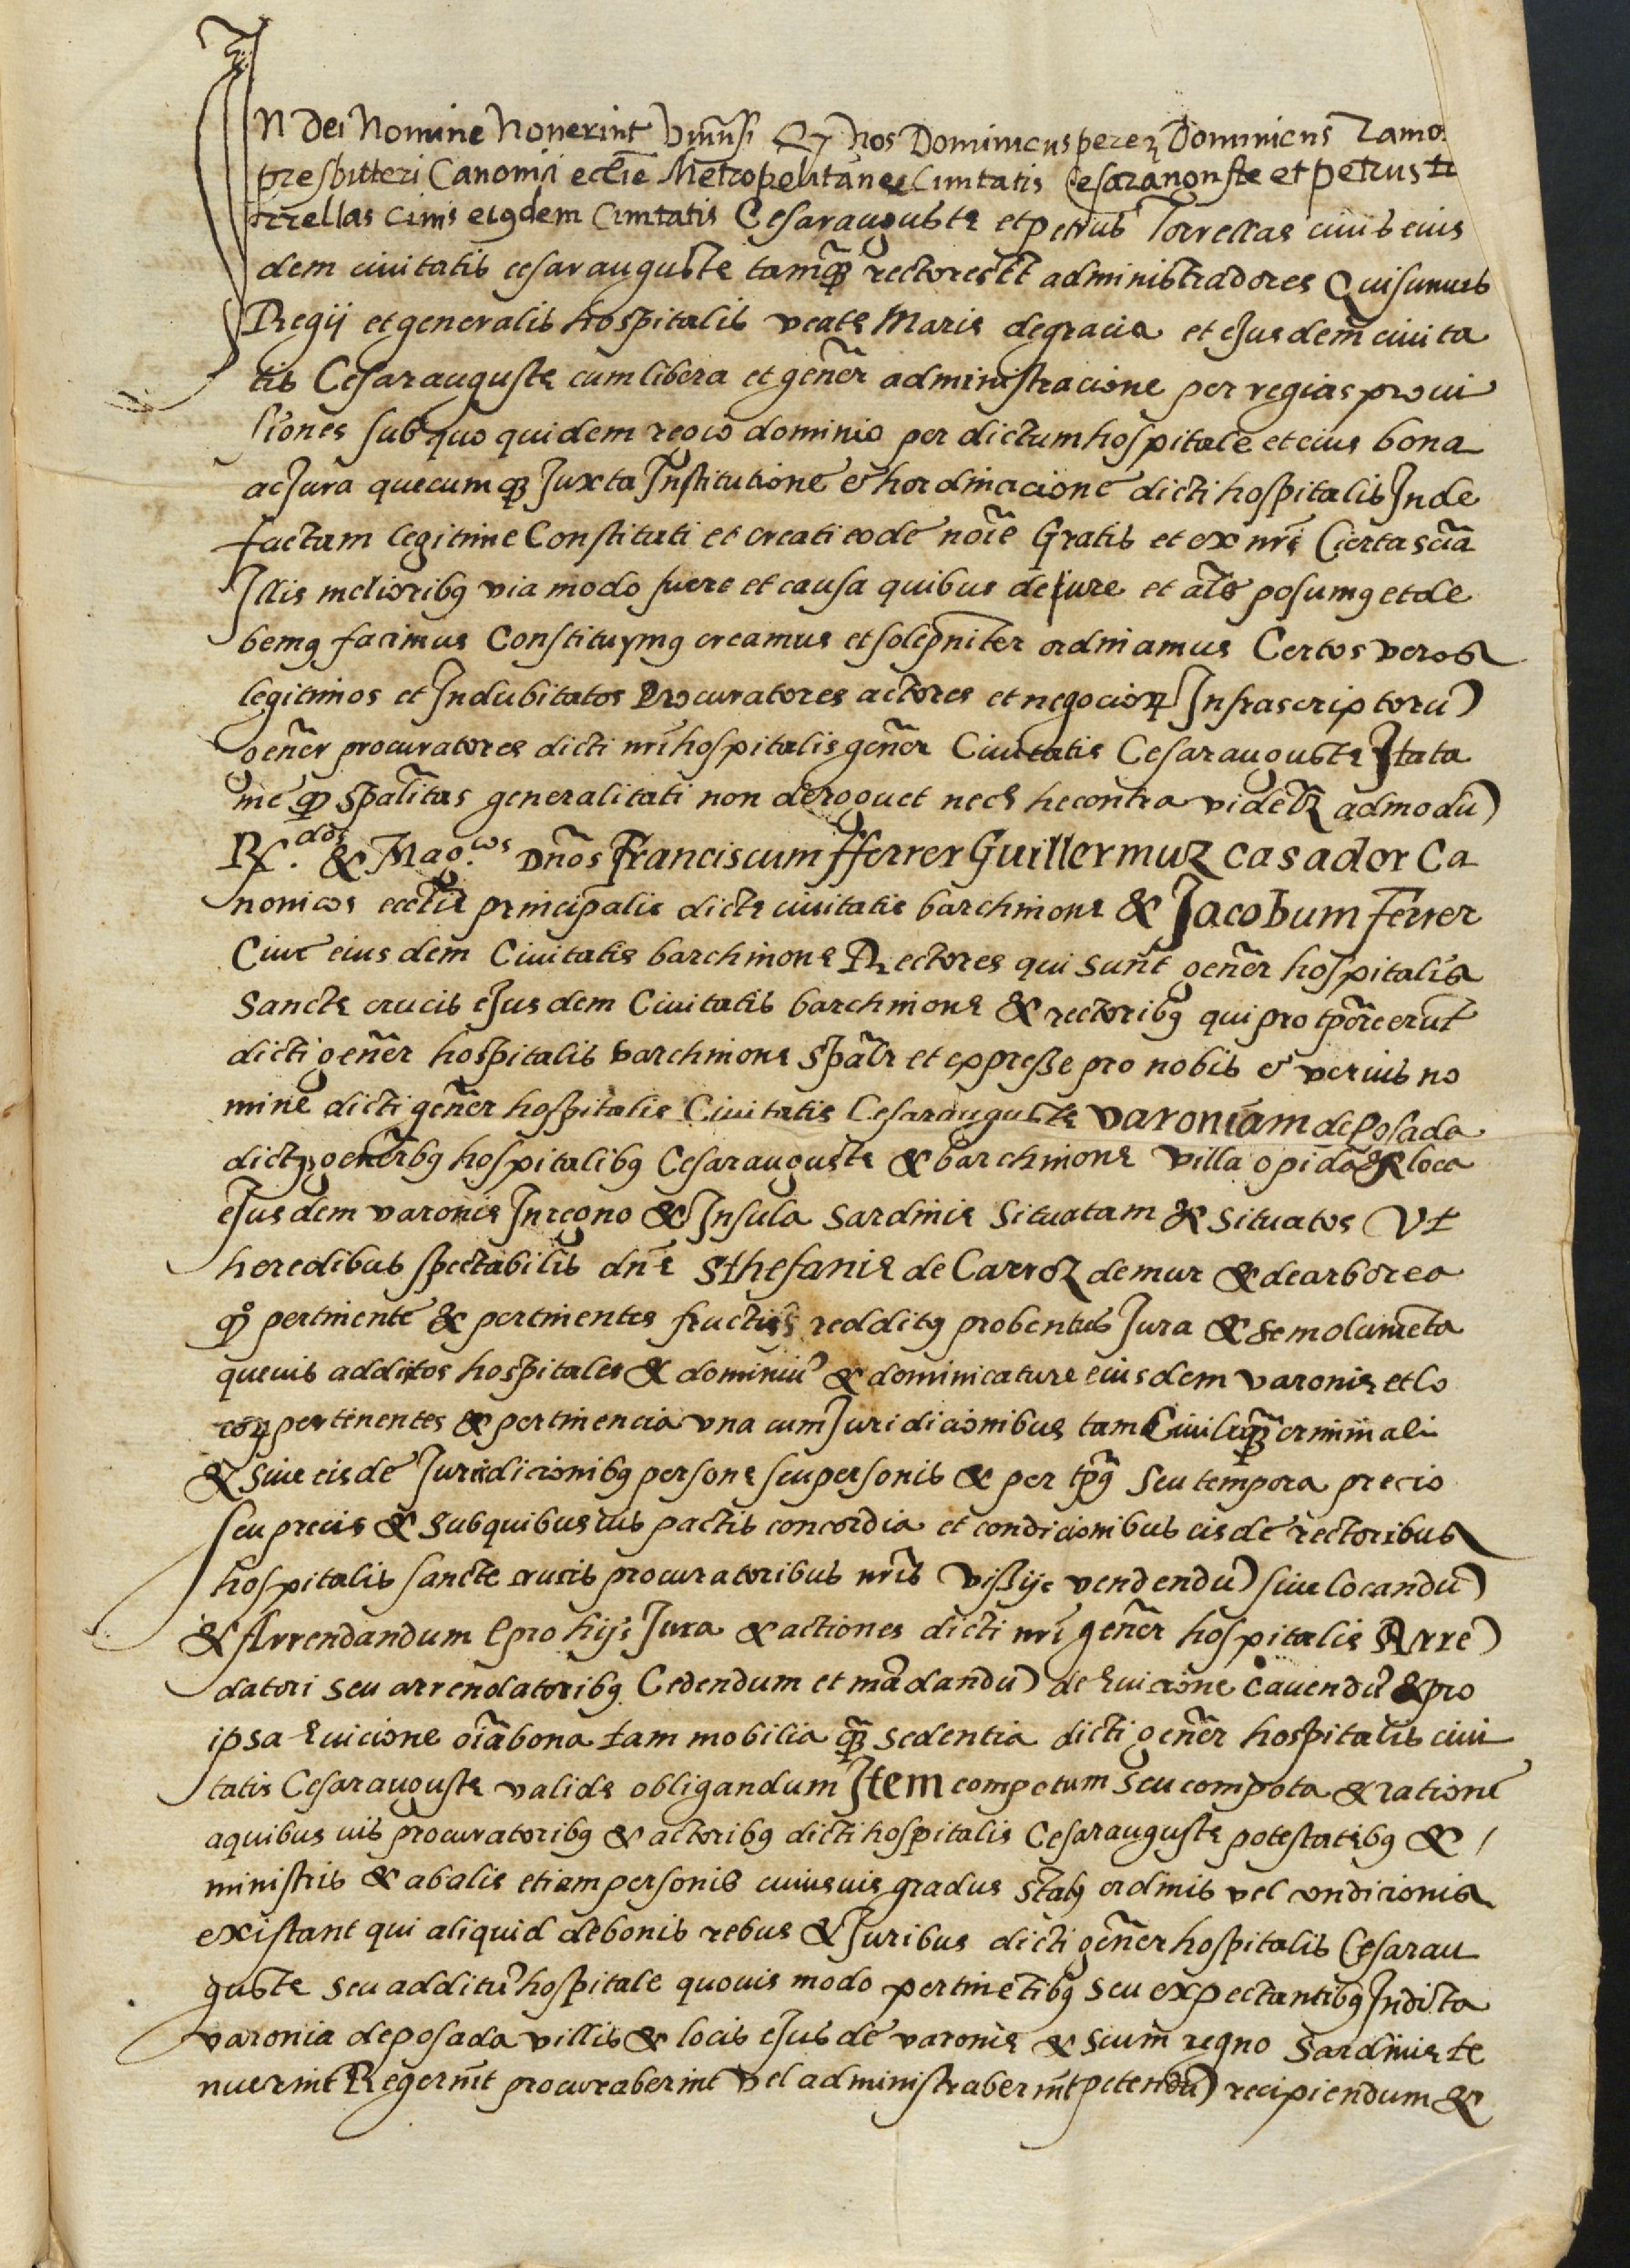 In Dei Nomine Noverint Vniūsi Q̨ Nos Dominicus perez Dominicus Zamo
presbitteri Canonici ecclīe Metropolitane Ciuitatis Cesarauguste et petrus to
rrellas ciuis eiqdem Ciuitatis Cesarauguste et petrus Torrellas ciuis eius
dem ciuitatis cesarauguste tamq̃ rectores Et administradores Qui sumus
Regij et generalis hospitalis veate Marie de gracia et ejusdem̄ ciuita
tis Cesarauguste cum libera et gen̄er administracione per regias proui
siones sub quo quidem regio dominio per dictum hospitale et eius bona
ac Jura quecumqȝ Juxta Jnstitutionē & hordinacionē dicti hospitalis Jnde
factam legitime Constituti et creati eodē noīe Gratis et ex nr̄is Certa scīa
Jllis melioribꝯ via modo fuere et causa quibus de jure et alĩs posumꝯ et de
bemꝯ facimus Constituymꝯ creamus et solep̄niter ordinamus Certos veros
legitimos et Jndubitatos Procuratores actores et negocioꝝ Jnfrascriptorū
gen̄er procuratores dicti nr̄i hospitalis gen̄er Ciuitatis Cesarauguste Jta ta
mē qȝ sp̄alitas generalitati non deroguet nech hecontra videtȝ admodū
Rx.dos & Mag.cos Dn̄os Franciscum fferrer Guillermuz casador Ca
nonicos ecctīe principalis dicte ciuitatis barchinone & Jacobum Ferrer
Ciuē eiusdem Ciuitatis barchinone Rectores qui sunt gen̄er hospitalis
Sancte crucis ejusdem Ciuitatis barchinone & rectoribꝯ qui pro tp̄ore erūt
dicti gen̄er hospitalis barchinone sp̄alr et expresse pro nobis & verius no
mine dicti gen̄er hospitalis Ciuitatis Cesarauguste varoniam de Posada
dictꝯ generbꝯ hospitalibꝯ Cesarauguste & barchinone villa opida & loca
ejusdem varonie Jn regno & Jnsula Sardinie Situatam & situatos Vt
heredibus spectabilis dn̄e Sthefanie de Carroz de mur & de arborea
qȝ pertinentē & pertinentes fructus redditꝯ probentus Jura & emolumēta
queuis addittos hospitales & dominiū & dominicature eiusdem varonie et lo
coꝝ pertinentes & pertinencia vna cum Juridicionibus tam Ciuili q̃ criminali
& siue eisdē Juridicionibꝯ persone seu personis & per tp̄ꝯ seu tempora precio
seu preciis & sub quibus uis pactis concordia et condicionibus eisdē rectoribus
hospitalis sancte crucis procuratoribus nr̄is vissijs vendendū siue locandū
& Arrendandum & pro hijs Jura & actiones dicti nr̄i gen̄er hospitalis Arrē
datori seu arrendatoribꝯ Cedendum et mādandū de Euicione cauendū & pro
ipsa Euicione oīa bona tam mobilia q̃ sedentia dicti gen̄er hospitalis ciui
tatis Cesarauguste valide obligandum Jtem compotum seu compota & rationē
a quibus uis procuratoribꝯ & actoribꝯ dicti hospitalis Cesarauguste potestatibꝯ &
ministris & ab aliis etiam personis cuiusuis gradus statꝯ ordinis vel condicionis
existant qui aliquid de bonis rebus & Juribus dicti gen̄er hospitalis Cesarau
guste seu ad dictū hospitale quouis modo pertinētibꝯ seu expectantibꝯ Jn dicta
varonia de posada villis & locis ejusdē varonie & seu in regno Sardinie te
nuerint Regerint procuraberint vel administraberint petendū recipiendum &